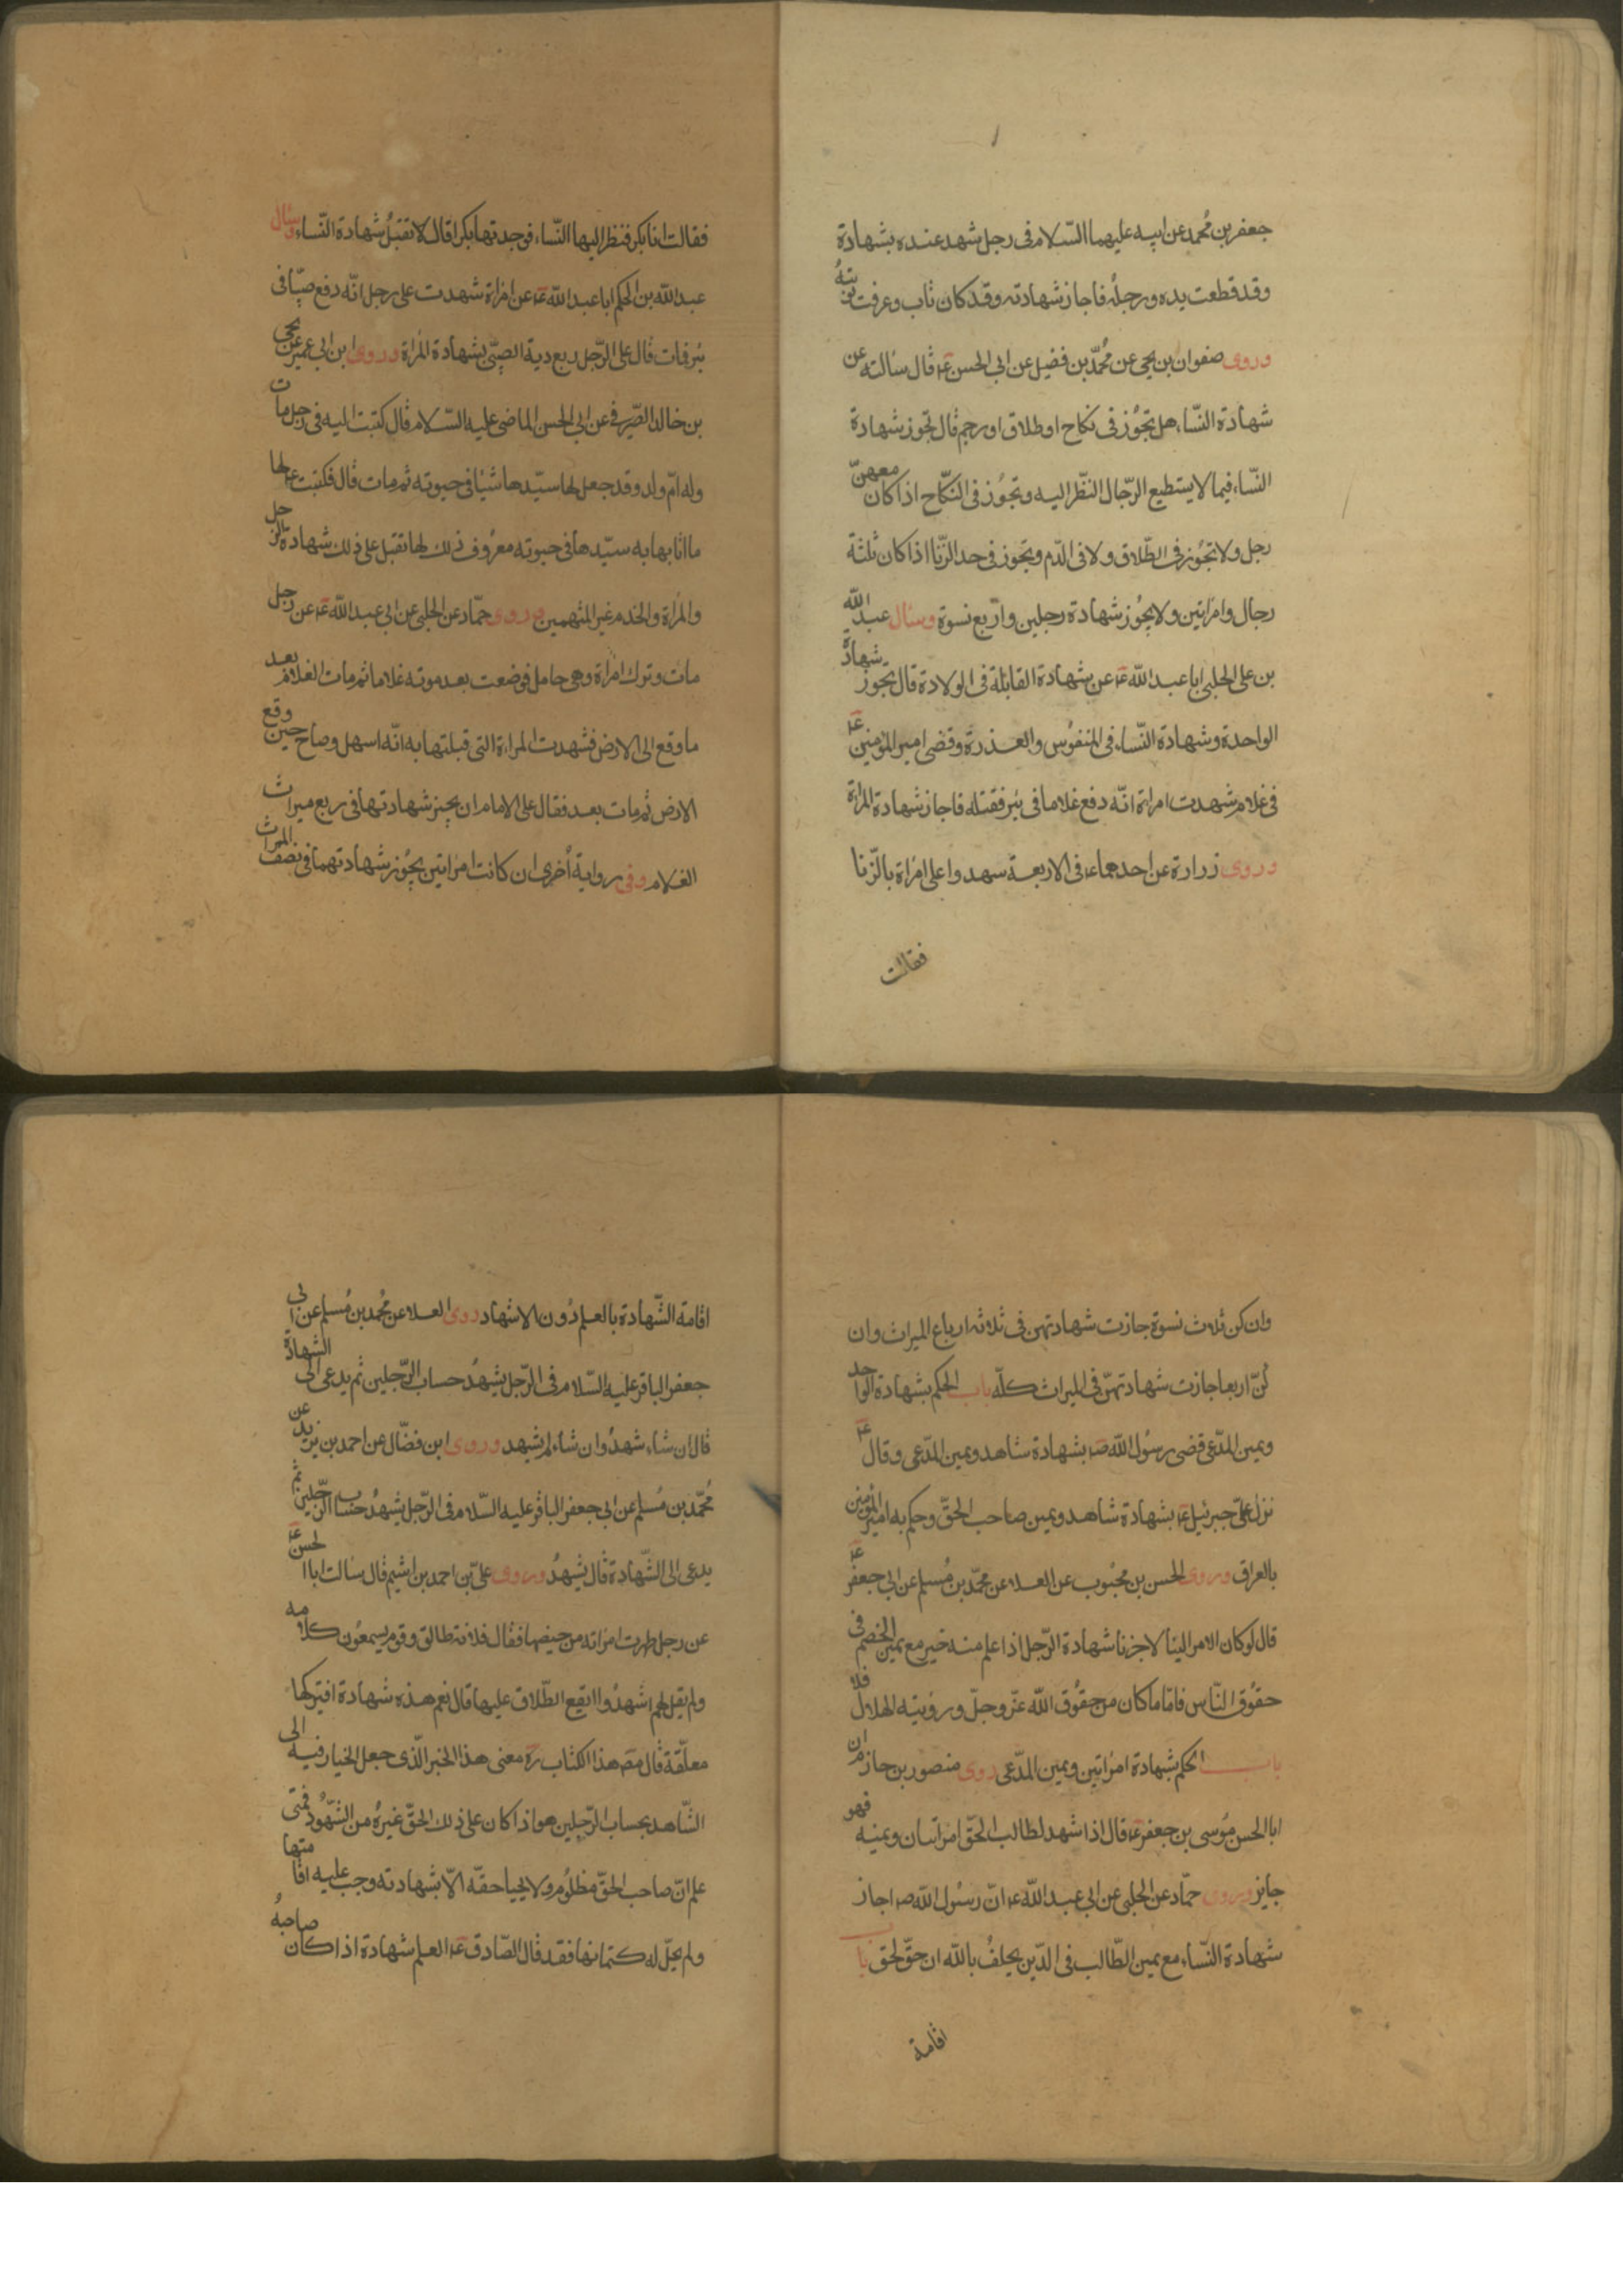 جعفر بن محمد عن ابيه عليهما السّلام فى رجل شهد عنده بشهادة
وقد قطعت يده ورجلُه فاجاز شهادته وقد كان تاب وعرفت توبتهُ
وروى صفوان بن يحيى عن محُمّد بن فضيل عن ابى الحسن ع قال سالته عن
شهادة النّساء هل تجوُز فى نكاح او طلاق او رجم قال تجوز شهادة
النّساء فيما لا يستطيع الرّجال النّظر اليه وتجوُز فى النّكاح اذا كان معهنّ
رجل ولا تجوُز فى الطّلاق ولا فى الدّم وتجوز فى حد الزّنا اذا كان ثلثة
رجال وامراتين ولا يجُوز شهادة رجلين واربع نسوة وسئال عبد اللّه
بن على الحلبى ابا عبد اللّه ع عن شهادة القابلة فى الولادة قال يجوز شهادة
الواحدة وشهادة النّساء فى المنفُوس والعذرة وقضى امير المؤمنين ع
فى غلام شهدت امراة انّه دفع غلاما فى بئر فقتله فاجاز شهادة المراة
وروى زرارة عن احدهما ع فى الاربعة سهدوا على امراة بالزّنا
فقالت
فقالت انا بكر فنظر اليها النّساء فوجدتها بكرا قال لا تقبلُ شهادة النّساء وسئال
عبد اللّه بن الحكم ابا عبد اللّه ع عن امراة شهدت على رجل انّه دفع صبيّا فى
بئر فمات قال على الرّجل ربع دية الصبّى بشهادة المراة وروى ابن ابى عمير عن يحيى
بن خالد الصّيرفى عن ابى الحسن الماضى عليه السّلام قال كتبت اليه فى رجل مات
وله امّ ولد وقد جعل لها سيّدها شيئا فى حيوته ثم مات قال فكتب ع لها
ما اثابها به سيّدها فى حيوته معرُوف ذلك لها تقبل على ذلك شهادة الرّجل
والمراة والخدم غير المتهمين وروى حمّاد عن الحلبى عن ابى عبد اللّه ع عن رجل
مات وترك امراة وهى حامل فوضعت بعد موته غلاما ثم مات الغلام بعد
ما وقع الى الارض فشهدت المراءة التى قبلتها به انّه اسهل وصاح حين وقع
الارض ثم مات بعد فقال على الامام ان يجيز شهادتها فى ربع ميراث
الغلام وفى رواية اُخرى ان كانت امراتين يجُوز شهادتهما فى نصف الميراث
وان كن ثلاث نسوة جازت شهادتهن فى ثلاثه ارباع الميراث وان
كُنّ اربعا جازت شهادتهنّ فى الميراث كلّه باب الحكم بشهادة الواحد
ويمين المدّعى قضى رسوُل اللّه ص بشهادة شاهد ويمين المدّعى وقال ع
نزل علىّ جبرئيل ع بشهادة شاهد ويمين صاحب الحقّ وحكم به امير المؤمنين ع
بالعراق وروى الحسن بن محبُوب عن العلاء عن محمّد بن مُسلم عن ابى جعفر
قال لو كان الامر الينا لاجزنا شهادة الرّجل اذا علم منه خير مع يمين الخصم فى
حقوُق النّاس فامّا ما كان من حقوُق اللّه عزّ وجلّ ورؤيته الهلال فلا
باب الحكم بشهادة امراتين ويمين المدّعى روى منصور بن حازم ان
ابا الحسن مُوسى بن جعفر ع قال اذا شهد لطالب الحقّ امراتان ويمنيه فهو
جايز وروى حمّاد عن الحلبى عن ابى عبد اللّه ع انّ رسوُل اللّه ص اجاز
شهادة النّساء مع يمين الطّالب فى الدّين يحلفُ باللّه ان حقّ لحق باب
اقامة
اقامة الشّهادة بالعلم دُون الاشهاد روى العلاء عن محُمد بن مُسلم عن ابى
جعفر الباقر عليه السّلام فى الرّجل يشهدُ حساب الرّجلين ثم يدعى الى الشهادة
قال ان شاء شهدُ وان شاء لم يشهد وروى ابن فضّال عن احمد بن يزيد عن
مُحمّد بن مُسلم عن ابى جعفر الباقر عليه السّلام فى الرّجل يشهدُ حساب الرّجلين ثم
يدعى الى الشّهادة قال يشهدُ وروى علىّ بن احمد بن اشيم قال سالت ابا الحسن ع
عن رجل طهرت امراته من حيضها فقال فلانة طالق وقوم يسمعُون كلامه
ولم يقل لهم اشهدُوا ايقع الطّلاق عليها قال نعم هذه شهادة افيتركها
معلّقة قال مص هذا الكتاب ره معنى هذا الخبر الّذى جعل الخيار فيه الى
الشّاهد بحساب الرّجلين هو اذا كان على ذلك الحقّ غيرهُ من الشّهُود فمتى
علم انّ صاحب الحقّ مظلُوم ولا يحيا حقّه الّا بشهادته وجب عليه اقامتها
ولم يحلّ له كتمانها فقد قال الصّادق ع العلم شهادة اذا كان صاحبهُ